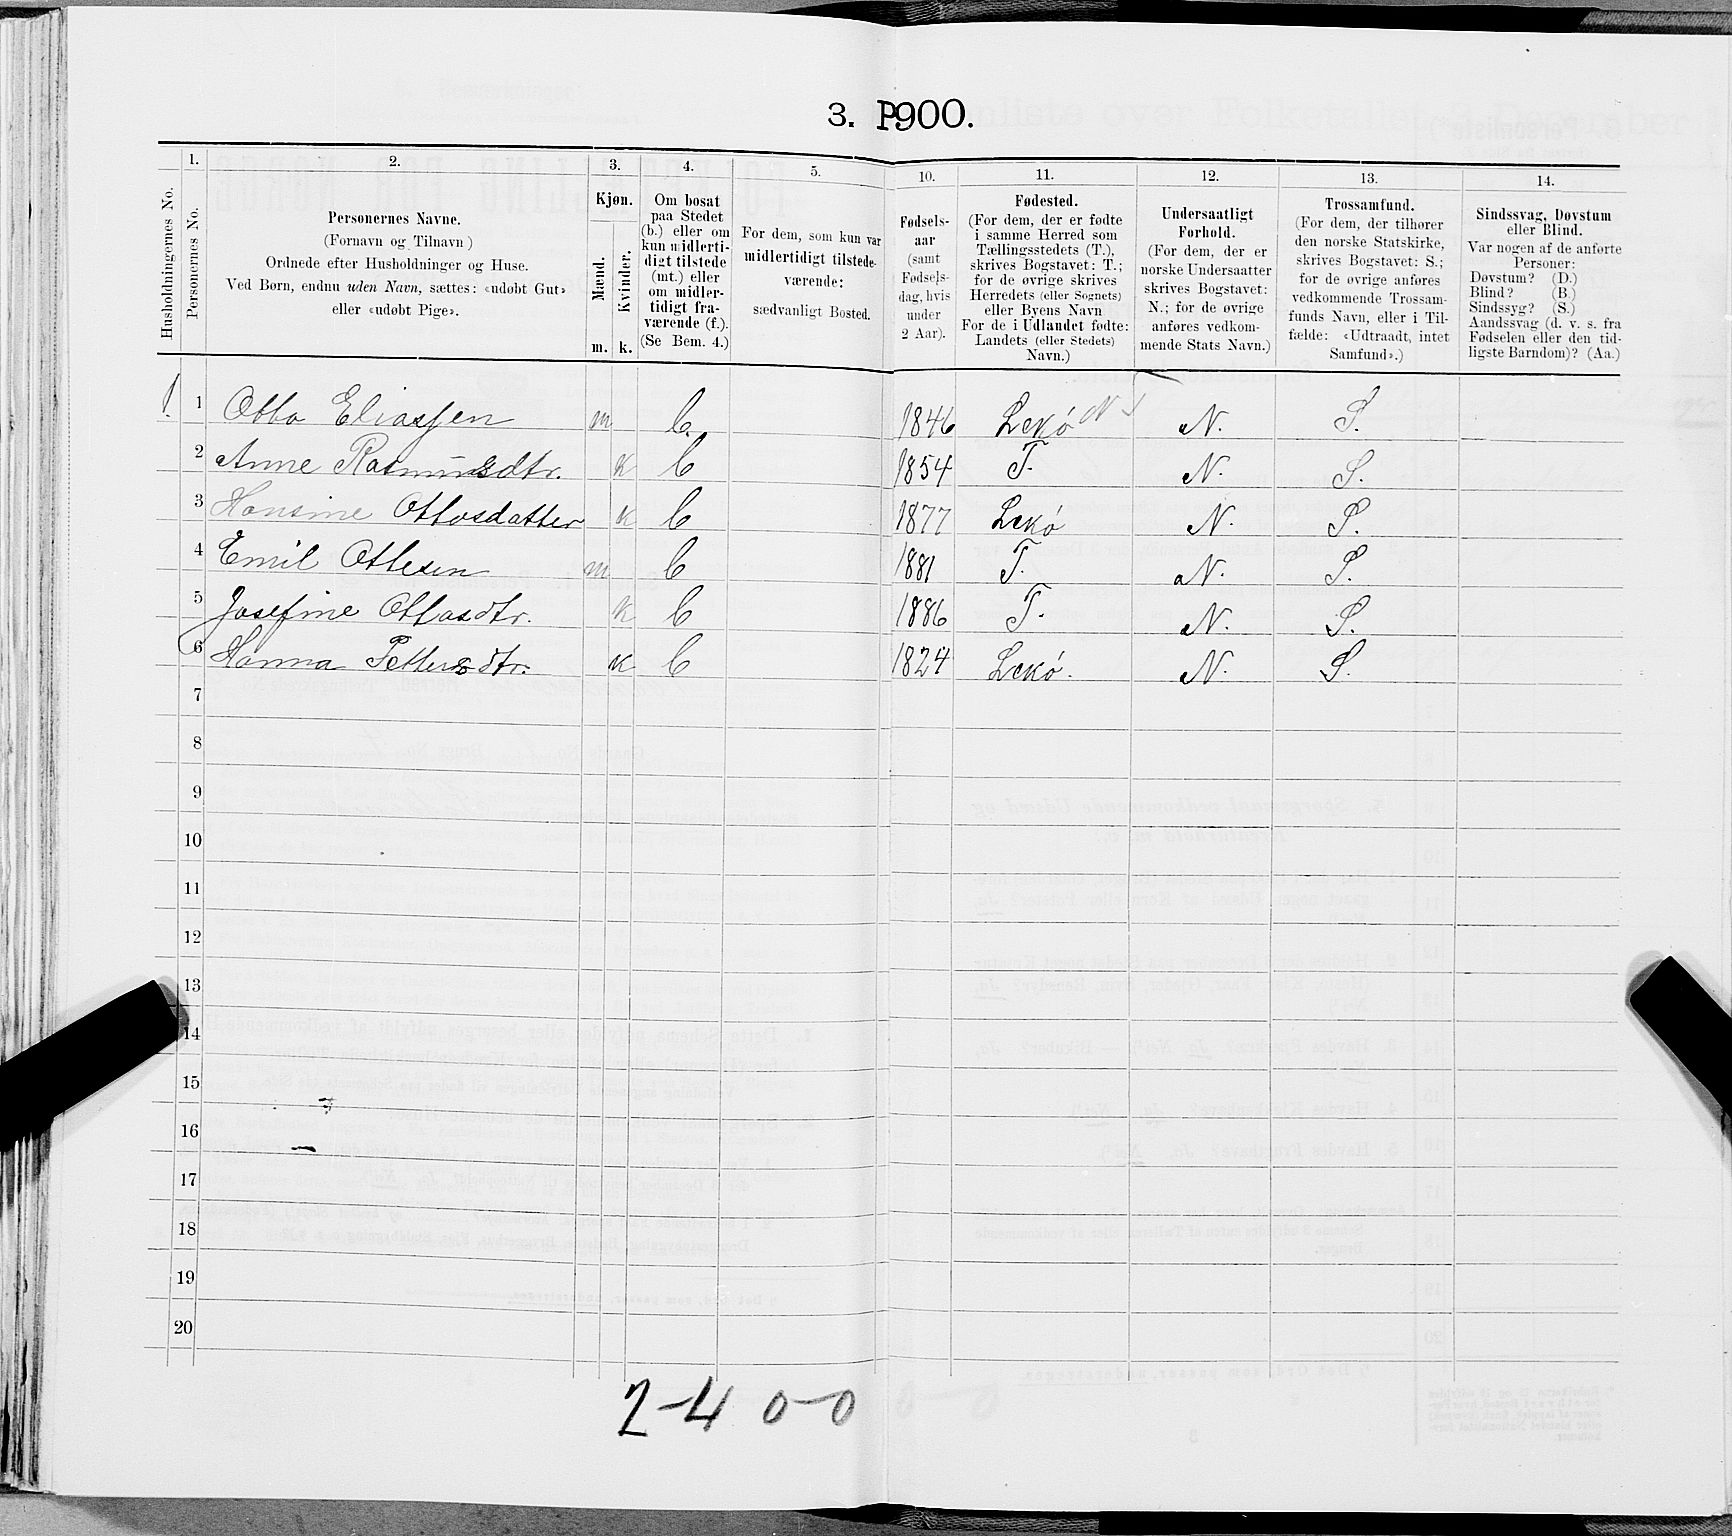 3. P900.
1. 2. 3. 4. 5. 10. 11. 12. 13. 14.
Husholdningernes No.
Personernes No.
Personernes Navne.
(Fornavn og Tilnavn)
Ordnede efter Husholdninger og Huse.
Ved Børn, endnu uden Navn, sættes: «udøbt Gut»
eller «udøbt Pige».
Kjøn.
Mænd.
Kvinder.
m. k.
Om bosat
paa Stedet
(b.) eller om
kun midlerti-
digt tilstede
(mt.) eller
om midler-
tidigt fra-
værende (f.).
(Se Bem. 4.)
For dem, som kun var
midlertidigt tilstede-
værende:
sædvanligt Bosted.
Fødsels-
aar
(samt
Fødsels-
dag, hvis
under
2 Aar).
Fødested.
(For dem, der er fødte
i samme Herred som
Tællingsstedets (T.),
skrives Bogstavet: T.;
for de øvrige skrives
Herredets (eller Sognets)
eller Byens Navn
For de i Udlandet fødte:
Landets (eller Stedets)
Navn.)
Undersaatligt
Forhold.
(For dem, der er
norske Undersaatter
skrives Bogstavet:
N.; for de øvrige
anføres vedkom-
mende Stats Navn.)
Trossamfund.
(For dem, der tilhører
den norske Statskirke,
skrives Bogstavet: S.;
for de øvrige anføres
vedkommende Trossam-
funds Navn, eller i Til-
fælde: «Udtraadt, intet
Samfund».)
Sindssvag, Døvstum
eller Blind.
Var nogen af de anførte
Personer:
Døvstum? (D.)
Blind? (B.)
Sindssyg? (S.)
Aandssvag (d. v. s. fra
Fødselen eller den tid-
ligste Barndom)? (Aa.)
1 1 Otto Eliassen m b. 1846 Lekø N. S.
2 Anne Rasmusdtr. k b 1854 T. N. S.
3 Hansine Ottosdatter k b 1877 Lekø N. S.
4 Emil Ottesen m b 1881 T. N. S.
5 Josefine Ottosdtr. k b 1886 T. N. S.
6 Hanna Pettersdtr. k b 1824 Lekø. N. S.
7
8
9
10
11
12
13
14
15
16
17
18
19
20
2-4 0-0